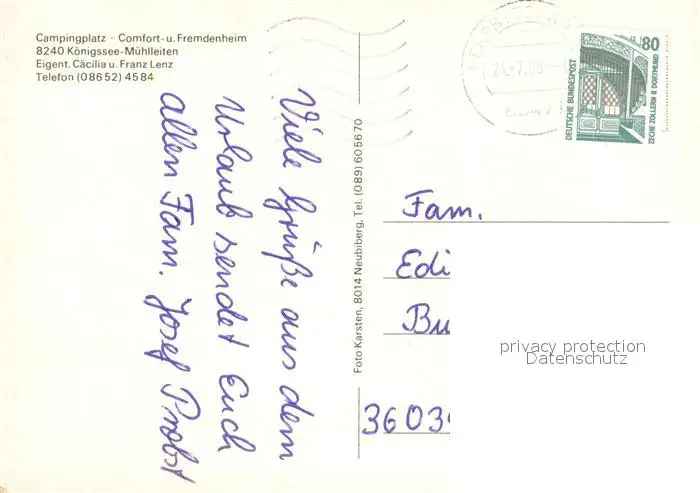 Campingplatz · Comfort- u. Fremdenheim
8240 Königssee-Mühlleiten
Eigent. Cäcilia u. Franz Lenz
Telefon (0 86 52) 45 84
Viele Grüße aus dem
Urlaub sendet Euch
allen Fam. Josef Probst
Foto Karsten, 8014 Neubiberg, Tel. (089) 605670
80
DEUTSCHE BUNDESPOST
ZECHE ZOLLERN II DORTMUND
Fam.
Edi
Bu
3603
privacy protection
Datenschutz